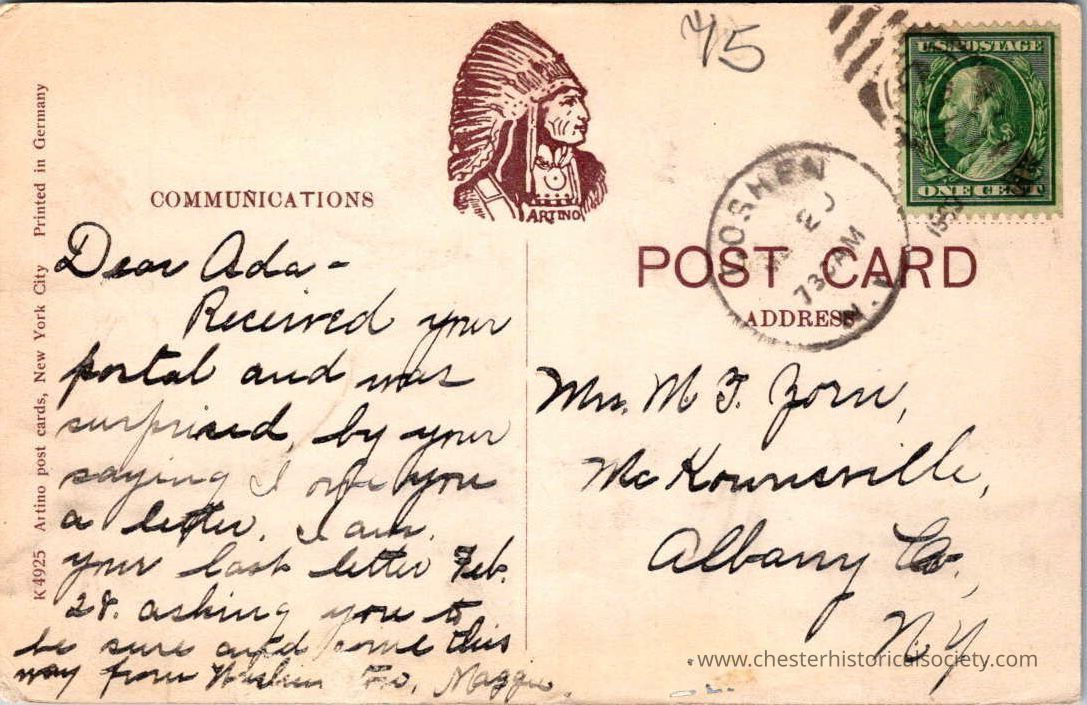 45
U.S. POSTAGE
ONE CENT
GOSHEN
730AM
N.Y.
ARTINO
COMMUNICATIONS
POST CARD
ADDRESS
K4925 Artino post cards, New York City Printed in Germany
Dear Ada-
Received your
portal and was
surprised, by your
saying I owe you
a letter. I ans.
your last letter Feb.
28. asking you to
be sure and come this
way from Maggie.
Mrs. M. T. Zorn,
McKownsville,
Albany Co.,
N.Y.
www.chesterhistoricalsociety.com